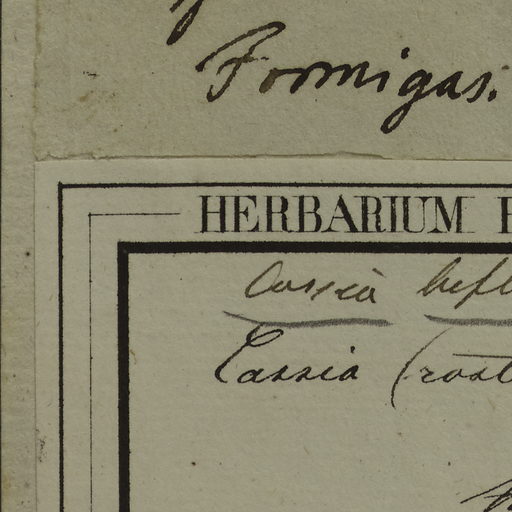 Formigas.
HERBARIUM
Cassia bifl
Cassia (rost